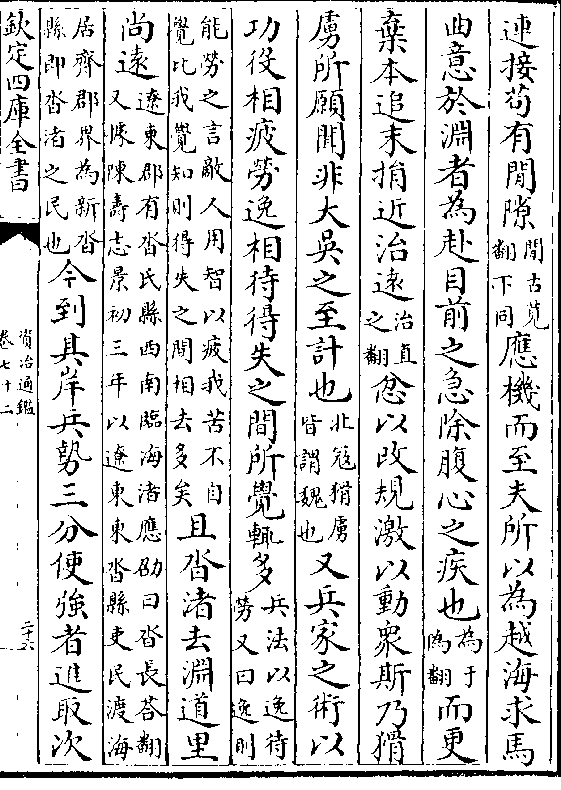 連接苟有間隙間古莧翻下同應機而至夫所以為越海求馬
曲意於淵者為赴目前之急除腹心之疾也為于偽翻而更
棄本追末捐近治遠治直之翻忿以改規激以動衆斯乃猾
虜所願聞非大吳之至計也北寇猾虜皆謂魏也又兵家之術以
功役相疲勞逸相待得失之間所覺輒多兵法以逸待勞又曰逸則
能勞之言敵人用智以疲我苦不自覺比我覺知則得失之間相去多矣且沓渚去淵道里
尚遠遼東郡有沓氏縣西南臨海渚應劭曰沓長荅翻又㨿陳壽志景初三年以遼東東沓縣吏民渡海
居齊郡界為新沓縣即沓渚之民也今到其岸兵勢三分使強者進取次
欽定四庫全書
資治通鑑
卷七十二
二十六